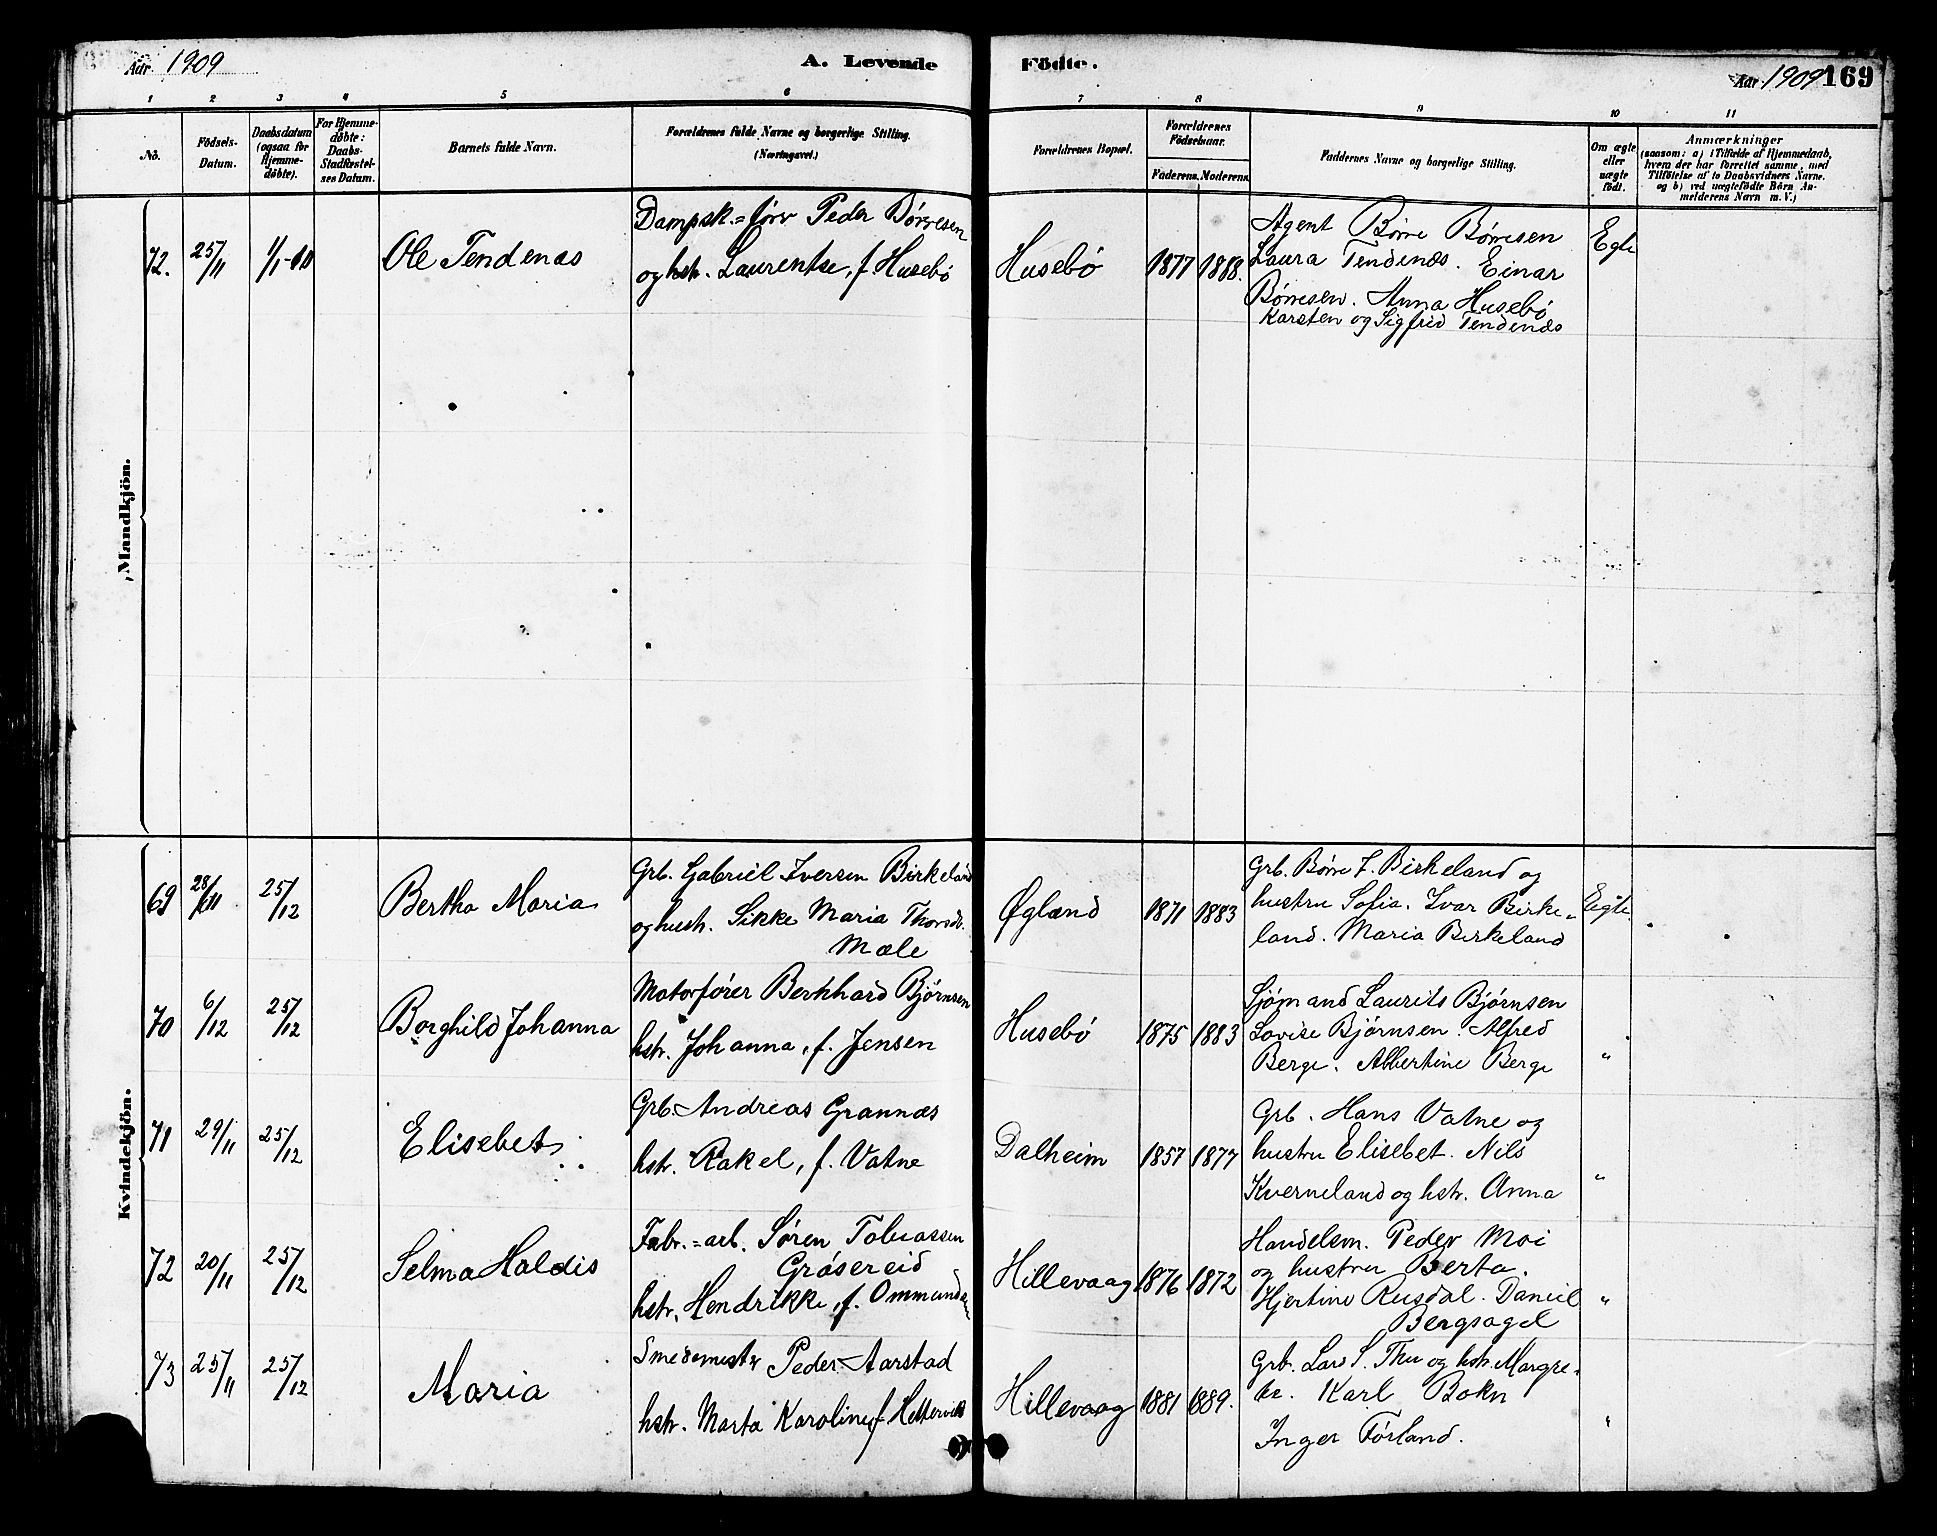 Aar 1909 A. Levende Födte. Aar 1909 169
1 2 3 4 5 6 7 8 9 10 11
No.
Födsels-Datum.
Daabsdatum (ogsaa for Hjemme-døbte).
For Hjemme-døbte: Daabs-Stadfæstel-ses Datum.
Barnets fulde Navn.
Forældrenes fulde Navne og borgerlige Stilling.
(Næringsvei.)
Forældrenes Bopæl.
Forældrenes Födselsaar.
Faderens. Moderens.
Faddernes Navne og borgerlige Stilling.
Om ægte eller uægte født.
Anmærkninger
(saasom: a) i Tilfælde af Hjemmedaab,
hvem der har forrettet samme, med
Tilföielse af to Daabsvidners Navne.
og b) ved uægtefödte Börn An-
melderens Navn m. V.)
Mandkjön.
72. 25/11 1/1-10 Ole Tendenæs
Dampsk.=förer Peder Börresen
og hstr. Laurentse, f Husebö
Husebö 1877 1888.
Agent Börre Börresen
Laura Tendenæs. Einar
Börresen. Anna Husebö
Karsten og Sigfrid Tendenæs
Egte
Kvindekjön.
69 28/11 25/12 Bertha Maria
Grb. Gabriel Iversen Birkeland
og hustr. Sikke Maria Thorsdr.
Mæle
Øglænd 1871 1883
Grb. Börre I. Birkeland og
hustru Sofia. Ivar Birke-
land. Maria Birkeland
Egte
70 6/12 25/12 Borghild Johanna
Motorförer Bernhard Bjørnsen
hstr. Johanna, f. Jensen
Husebö 1875 1883
Sjømand Laurits Bjørnsen
Lovise Bjørnsen. Alfred
Berge. Albertine Berge
"
71 29/11 25/12 Elisebet
Grb. Andreas Grannæs
hstr. Rakel, f. Vatne
Dalheim 1857 1877
Grb. Hans Vatne og
hustru Elisebet. Nils
Kverneland og hstr. Anna
"
72 20/11 25/12 Selma Haldis
Fabr.=arb. Søren Tobiassen
Gråsereid
hstr. Hendrikke, f. Ommundsen
Hillevaag 1876 1872
Handelsm. Peder Moi
og hustru Berta.
Hjertine Rusdal. Daniel
Bergsagel
"
73 25/11 25/12 Maria
Smedemester Peder Aarstad
hstr. Marta Karoline f. Hettervik
Hillevaag 1881 1889.
Grb. Lars S. Thu og hstr. Margre-
te. Karl Bokn
Inger Förland.
"